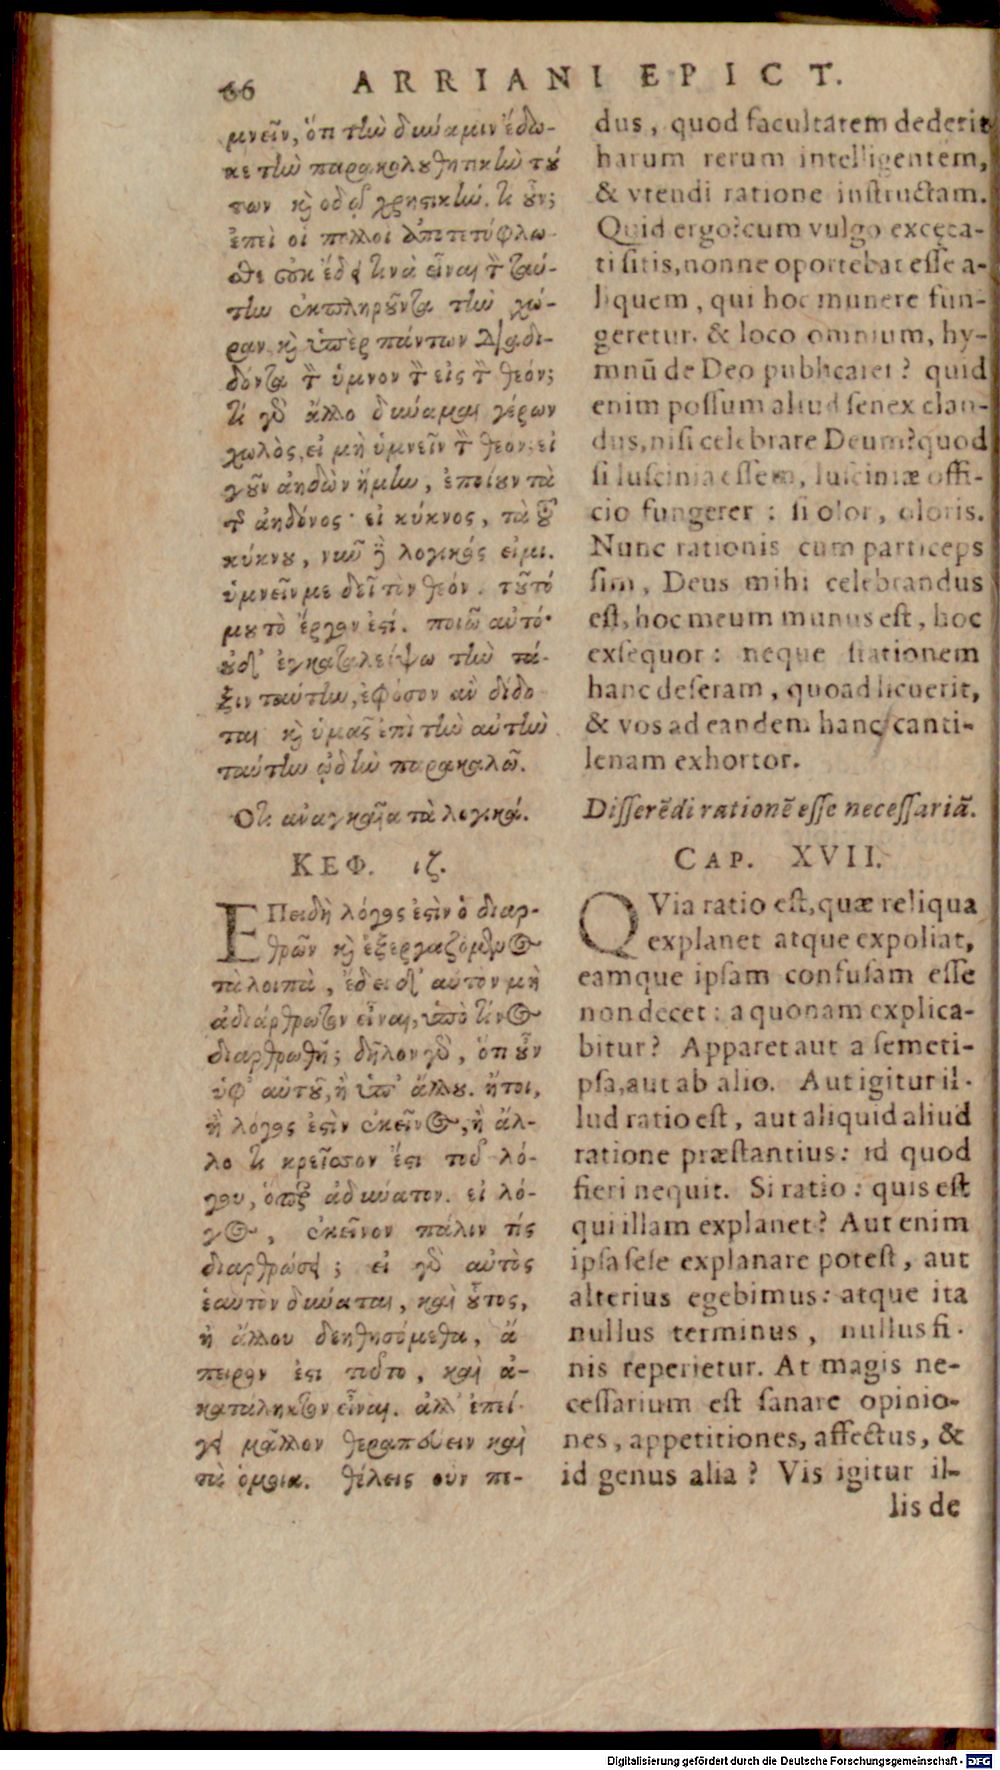 66
ARRIANI EPICT.
μνεῖν, ὅτι τὴν δύναμιν ἔδω-
κε τὴν παρακολουθητικὴν τού
των καὶ ὁδῷ χρηστικήν. τί οὖν;
ἐπεὶ οἱ πολλοὶ ἀποτετύφλω
σθε οὐκ ἔδει τινὰ εἶναι τὸν ταύ-
την ἐκπληροῦντα τὴν χώ-
ραν καὶ ὑπὲρ πάντων διαδι-
δόντα τὸν ὕμνον τὸν εἰς τὸν θεόν;
τί γὰρ ἄλλο δύναμαι γέρων
χωλὸς, εἰ μὴ ὑμνεῖν τὸν θεόν; εἰ
γοῦν ἀηδὼν ἤμην, ἐποίουν τὰ
τῆς ἀηδόνος· εἰ κύκνος, τὰ τοῦ
κύκνου, νῦν δὲ λογικός εἰμι.
ὑμνεῖν με δεῖ τὸν θεόν. τοῦτό
μου τὸ ἔργον ἐστί. ποιῶ αὐτό·
οὐδ' ἐγκαταλείψω τὴν τά-
ξιν ταύτην, ἐφόσον ἂν δίδο
ται καὶ ὑμᾶς ἐπὶ τὴν αὐτὴν
ταύτην ᾠδὴν παρακαλῶ.
Ὅτι ἀναγκαῖα τὰ λογικά.
ΚΕΦ. ιζ.
ΕΠειδὴ λόγος ἐστὶν ὁ διαρ-
θρῶν καὶ ἐξεργαζόμενος
τὰ λοιπὰ, ἔδει δ' αὐτὸν μὴ
ἀδιάρθρωτον εἶναι, ὑπὸ τίνος
διαρθρωθῇ; δῆλον γὰρ, ὅτι οὖν
ὑφ' αὑτοῦ, ἢ ὑπ' ἄλλου. ἤτοι,
ἢ λόγος ἐστὶν ἐκεῖνος, ἢ ἄλ-
λο τι κρεῖσσον ἔστι τοῦ λό-
γου, ὅπερ ἀδύνατον. εἰ λό-
γος, ἐκεῖνον πάλιν τίς
διαρθρώσει; εἰ γὰρ αὐτὸς
ἑαυτὸν δύναται, καὶ οὗτος,
ἢ ἄλλου δεηθησόμεθα, ἄ
πειρον ἔστι τοῦτο, καὶ ἀ-
κατάληκτον εἶναι. ἀλλ' ἐπεί-
γει μᾶλλον θεραπεύειν καὶ
τὰ ὅμοια. θέλεις οὖν πε-
dus, quod facultatem dederit
harum rerum intelligentem,
& vtendi ratione instructam.
Quid ergo? cum vulgo excęca-
ti sitis, nonne oportebat esse a-
liquem, qui hoc munere fun-
geretur. & loco omnium, hy-
mnū de Deo publicaret? quid
enim possum aliud senex clau-
dus, nisi celebrare Deum? quod
si luscinia essem, lusciniæ offi-
cio fungerer: si olor, oloris.
Nunc rationis cum particeps
sim, Deus mihi celebrandus
est, hoc meum munus est, hoc
exsequor: neque stationem
hanc deseram, quoad licuerit,
& vos ad eandem hanc canti-
lenam exhortor.
Disserēdi rationē esse necessariā.
CAP. XVII.
QVia ratio est, quæ reliqua
explanet atque expoliat,
eamque ipsam confusam esse
non decet: a quonam explica-
bitur? Apparet aut a semeti-
psa, aut ab alio. Aut igitur il-
lud ratio est, aut aliquid aliud
ratione præstantius: id quod
fieri nequit. Si ratio: quis est
qui illam explanet? Aut enim
ipsa sese explanare potest, aut
alterius egebimus: atque ita
nullus terminus, nullus fi-
nis reperietur. At magis ne-
cessarium est sanare opinio-
nes, appetitiones, affectus, &
id genus alia? Vis igitur il-
lis de
Digitalisierung gefördert durch die Deutsche Forschungsgemeinschaft - DFG